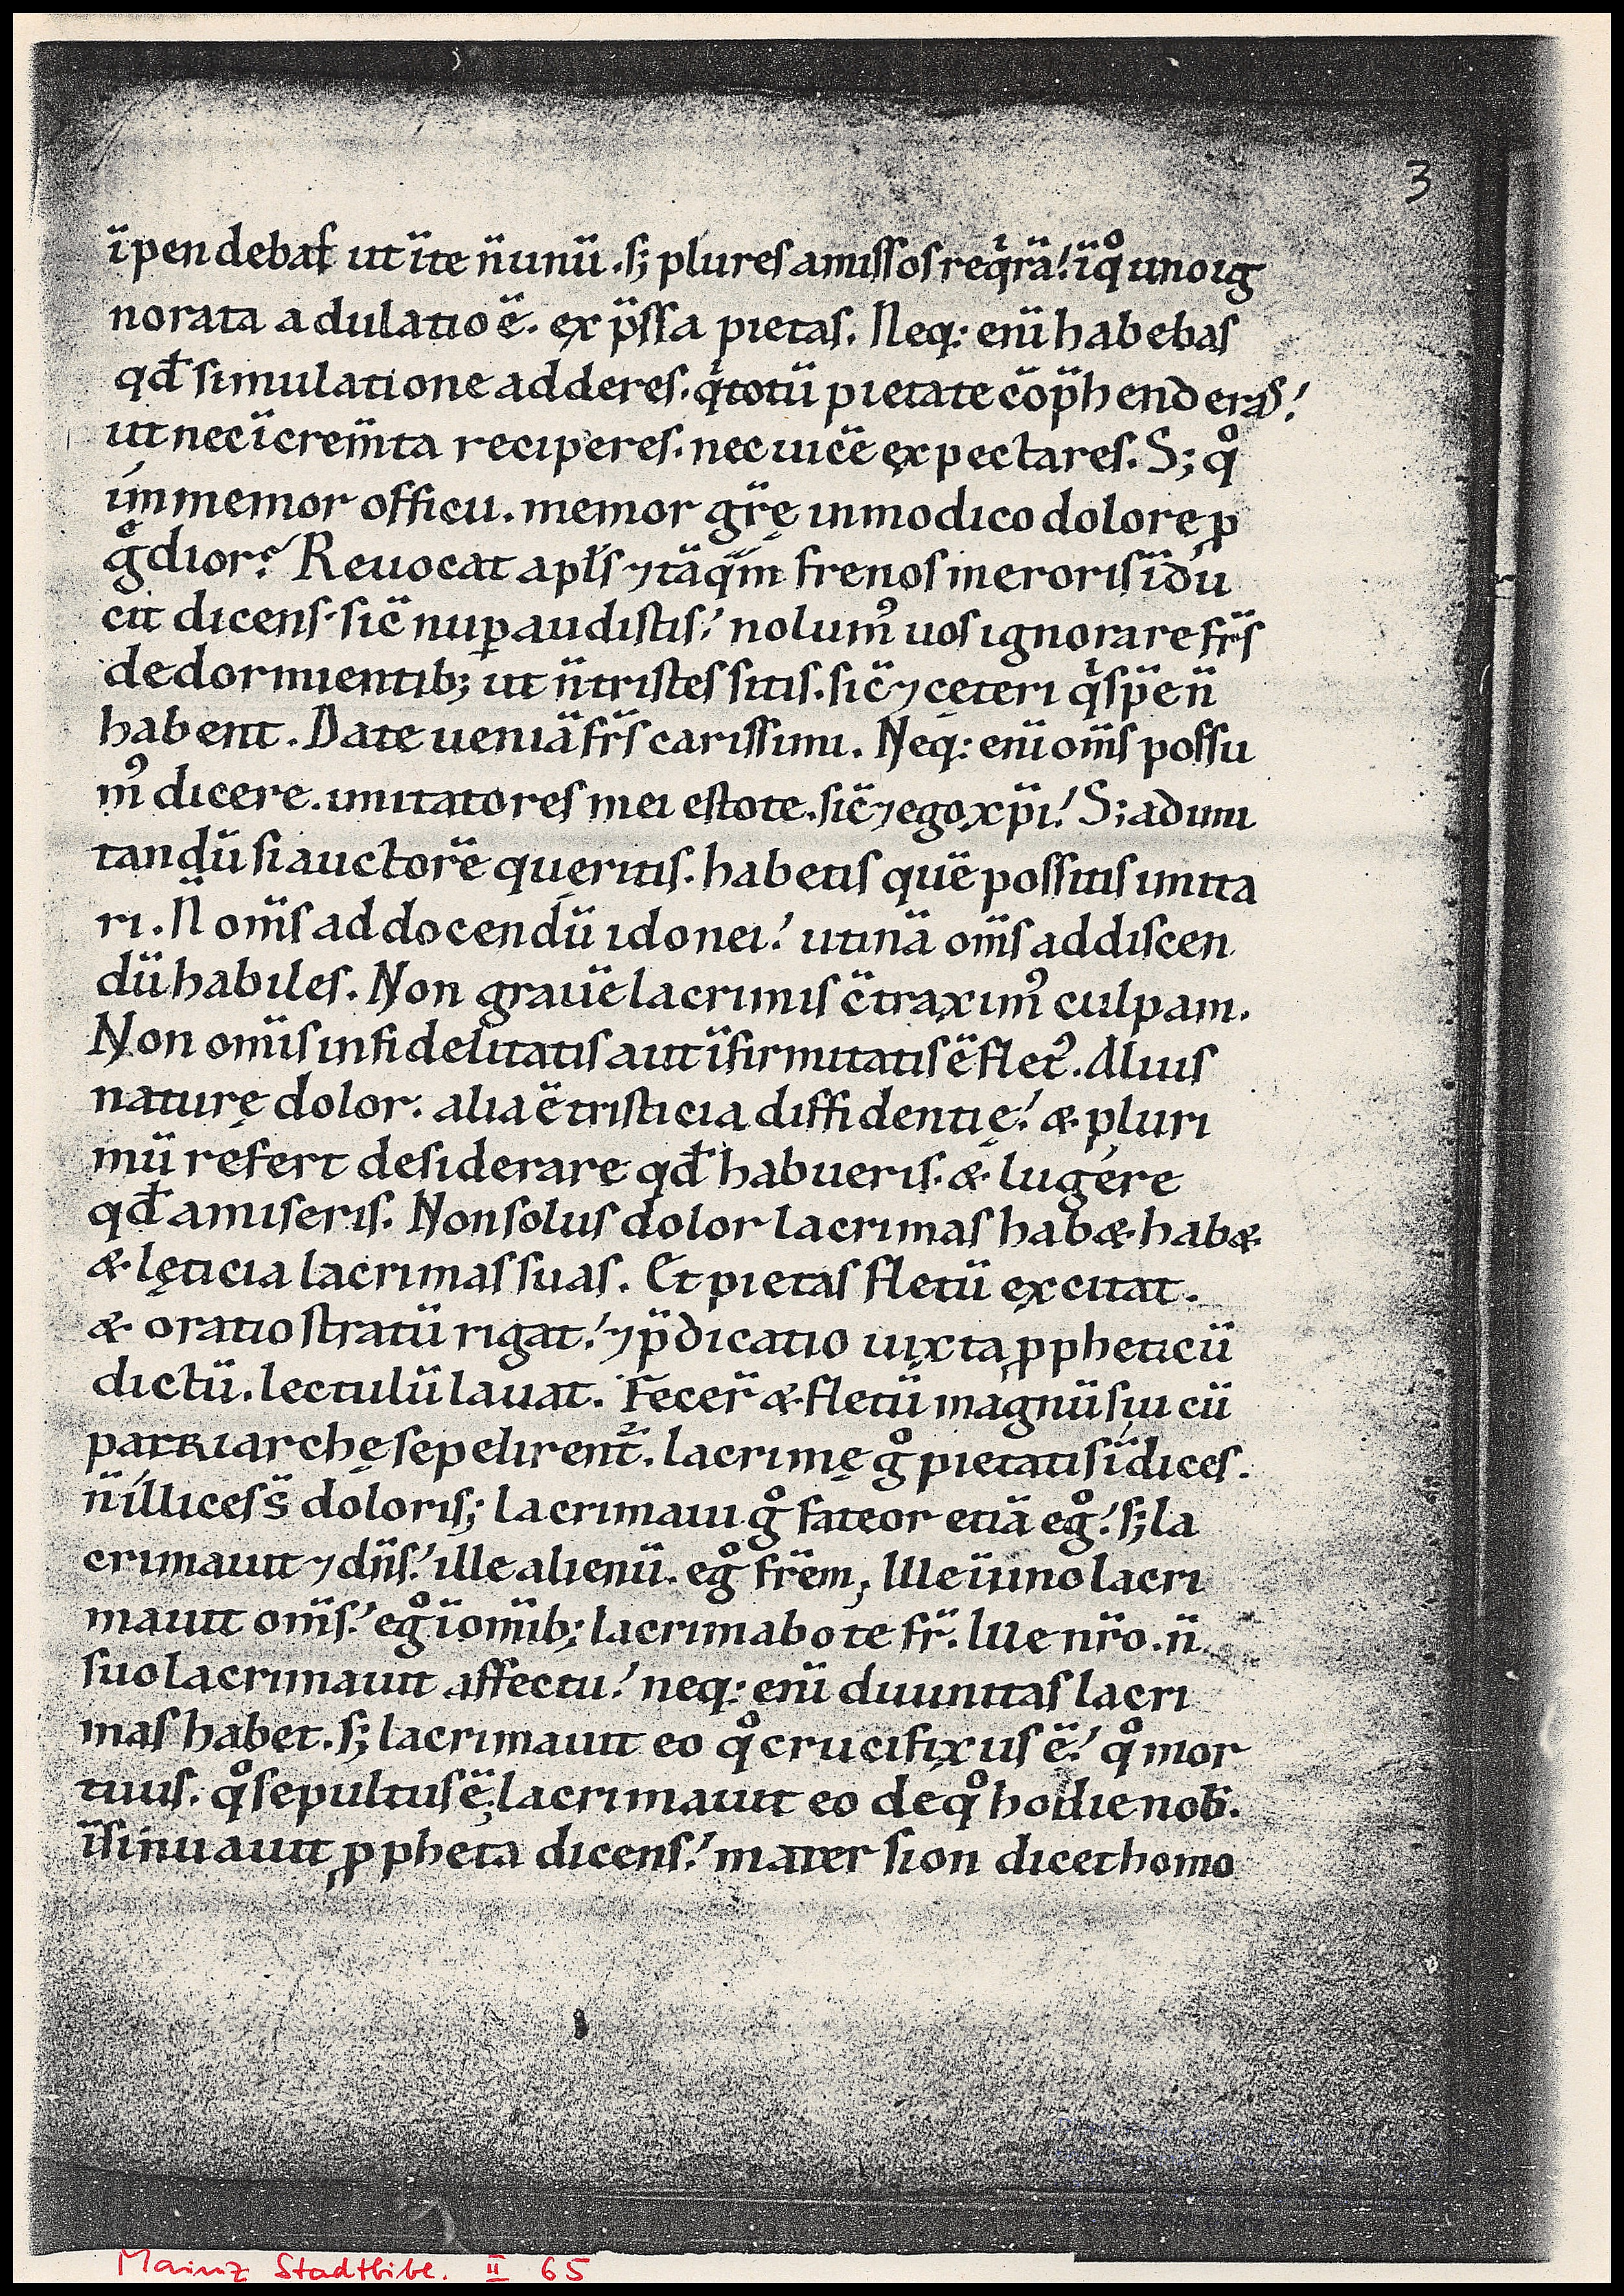 3
ı̈pendebaſ ut ı̈te n̈ unü. ſꝫ plureſ amiſſoſ req̍rä! ı̈ q̊ uno ig
norata adulatio ë. exp̈ſſa pietaſ. Neq: enı̈ habebaſ
qđ ſimulatione addereſ. q̍ totü pietate cöp̈henderaſ!
ut nec ı̈crem̈ta recipereſ. nec uicë expectareſ. S; q̊
ímmemor officii. memor gr̈ę inmodico dolore ꝓ
gͤdior? Reuocat apl̈ſ ⁊ täq̈m frenoſ meroriſ ı̈du
cit dicenſ. ſic̈ nuꝑ audiſtiſ! nolumꝰ uoſ ignorare fr̈ſ
de dormientibꝫ ut n̈ triſteſ ſitiſ. ſic̈ ⁊ cęteri q̍ ſp̈e n̈
habent. Date ueniä fr̈ſ cariſſimi. Neq: enı̈ om̈ſ poſſu
mꝰ dicere. imitatoreſ mei eſtote. ſic̈ ⁊ ego xp̈i! S; ad imi
tandü ſi auctorë queritiſ. habetiſ quë poſſitiſ imita
ri. N̈ om̈ſ ad docendü idonei! utinä om̈ſ ad diſcen
dü habileſ. Non grauë lacrimiſ c̈traximꝰ culpam.
Non om̈iſ infidelitatiſ aut ı̈firmitatiſ ë fletꝰ. Aliuſ
naturę dolor. alia ë triſticia diffidentię! & pluri
mü refert deſiderare qđ habueriſ. & lugére
qđ amiſeriſ. Non ſoluſ dolor lacrimaſ hab&. hab&
& lęticia lacrimaſ ſuaſ. Et pietaſ fletü excitat.
& oratio ſtratü rigat! ⁊ p̈dicatio iuxta ꝓpheticü
dictü. lectulü lauat. Fecer̈ & fletü magnü ſui cü
patriarchę ſepelirent᷑. lacrimę g̊ pietatiſ ı̈diceſ.
n̈ ílliceſ s̈ doloriſ; lacrimaui g̊ fateor etiä eg̊! ſꝫ la
crimauit ⁊ dn̈ſ! ille alienü. eg̊ fr̈em; Ille ı̈ uno lacri
mauit om̈ſ! eg̊ ı̈ om̈ibꝫ lacrimabo te fr̈. Ille nr̈o. n̈
ſuo lacrimauit affectu! neq: enı̈ diuinitaſ lacri
maſ habet. ſꝫ lacrimauit eo q̊ crucifixuſ ë! q̊ mor
tuuſ. q̊ ſepultuſ ë; lacrimauit eo de q̊ hodie nob̄.
ı̈ſinuauit ꝓpheta dicenſ! mater ſion dicet homo
Mainz Stadtbibl. II 65